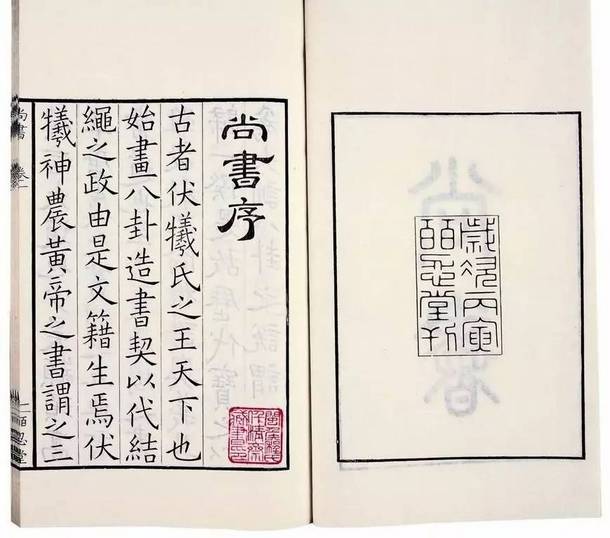 歲次丙寅
百忍堂刊
尚書序
古者伏犧氏之王天下也
始畫八卦造書契以代結
繩之政由是文籍生焉伏
犧神農黃帝之書謂之三
尚書 卷一
一 百忍堂